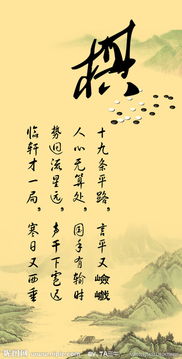 棋
十九条平路，言平又嶮巇
人心无算处，国手有输时
势迥流星远，声干下雹迟
临轩才一局，寒日又西垂